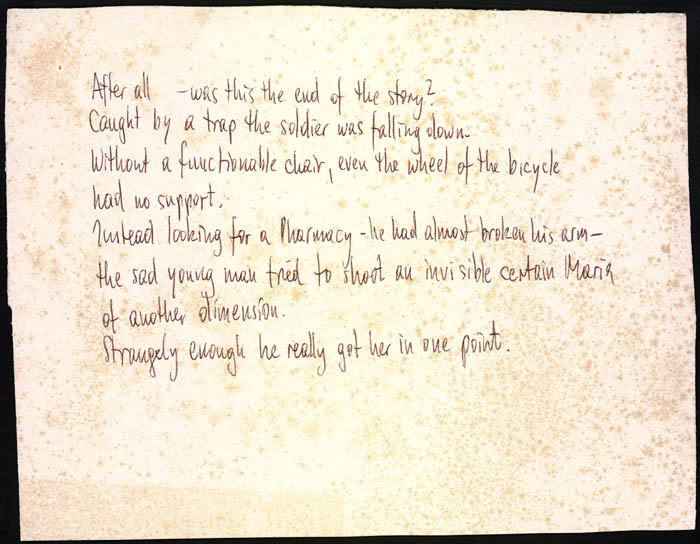 After all - was this the end of the story?
Caught by a trap the soldier was falling down.
Without a functionable chair, even the wheel of the bicycle
had no support.
Instead looking for a Pharmacy - he had almost broken his arm -
the sad young man tried to shoot an invisible certain Maria
of another dimension.
Strangely enough he really got her in one point.